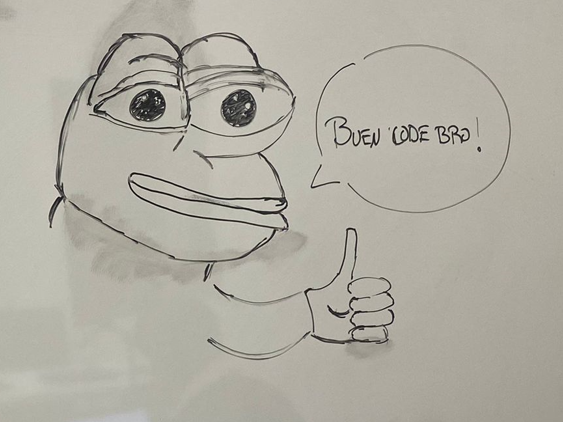 BUEN CODE BRO!